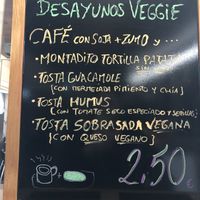 DESAYUNOS VEGGIE
CAFÉ CON SOJA + ZUMO y ...
• MONTADITO TORTILLA PATATA
SIN
• TOSTA GUACAMOLE
(CON MERMELADA PIMIENTO Y CHÍA)
• TOSTA HUMUS
(CON TOMATE SECO ESPECIADO Y SEMILLAS)
• TOSTA SOBRASADA VEGANA
(CON QUESO VEGANO)
2,50